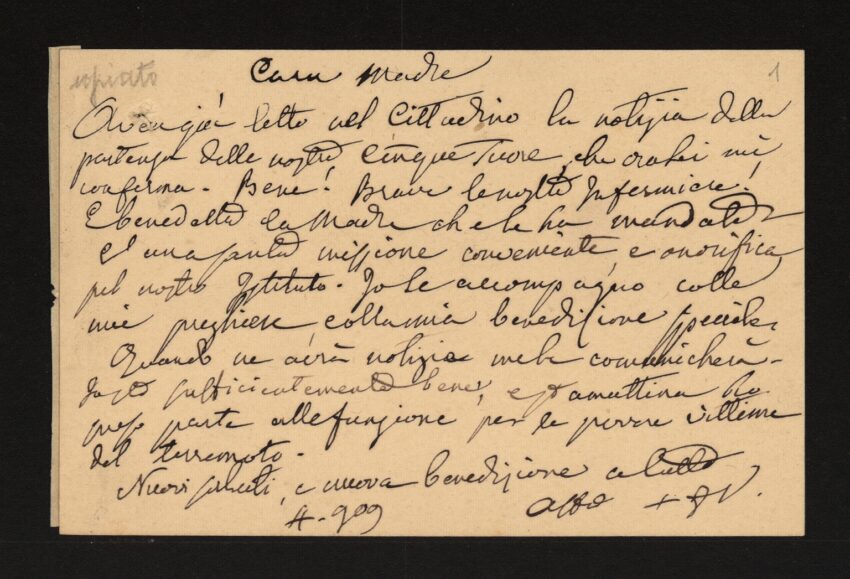 copiato
1
Cara Madre
Avea già letto nel Cittadino la notizia della
partenza delle nostre cinque Suore, che ora lei mi
conferma. Bene! Brave le nostre Infermiere!
E benedetta la Madre che le ha mandate
È una santa missione conveniente e onorifica
pel nostro Istituto. Io le accompagno colle
mie preghiere e colla mia benedizione speciale.
Quando ne avrà notizie me le comunicherà.
Io sto sufficientemente bene, e stamattina ho
preso parte alle funzione per le povere vittime
del terremoto.
Nuovi saluti, e nuova benedizione a tutte
4-909
Affo +